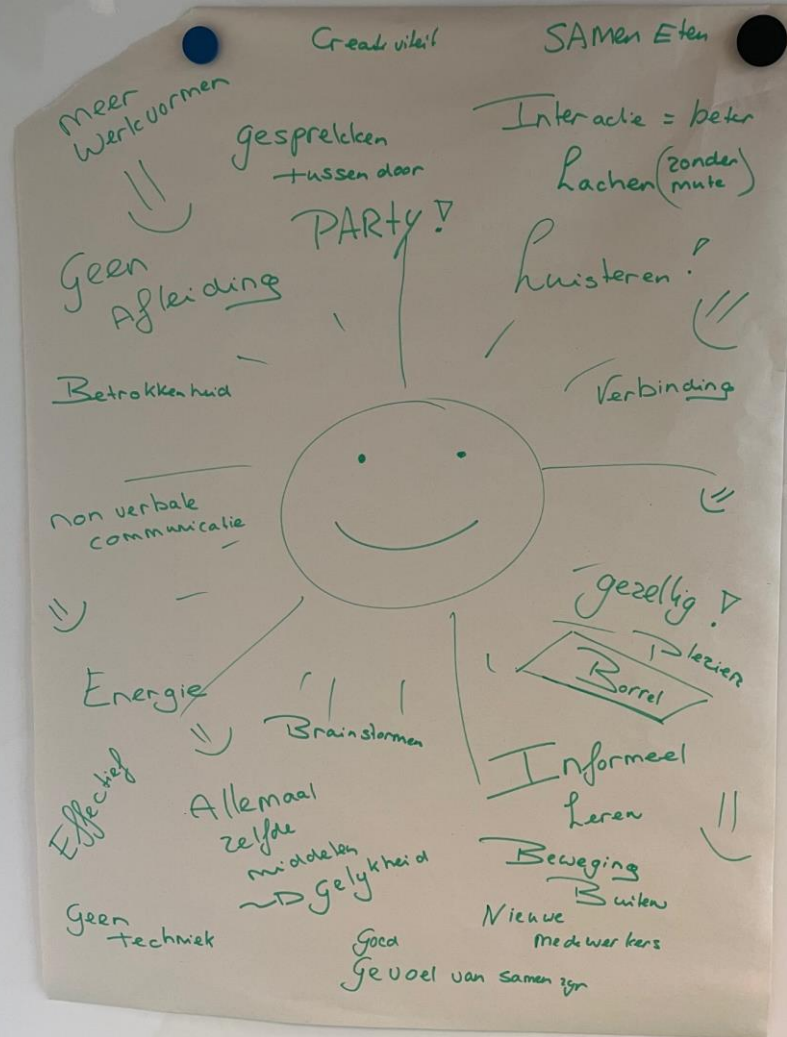 Creativiteit
SAMEN ETEN
Meer
Werkvormen
gesprekken
tussen door
Interactie = beter
Lachen (zonder
mute)
PARTY!
Luisteren!
Geen
Afleiding
Betrokkenheid
Verbinding
non verbale
communicatie
gezellig!
Plezier
Borrel
Energie
Brainstormen
Informeel
Leren
Effectief
Allemaal
zelfde
middelen
→ gelykheid
Beweging
Buiten
Geen
techniek
Nieuwe
medewerkers
Goed
Gevoel van samen zyn